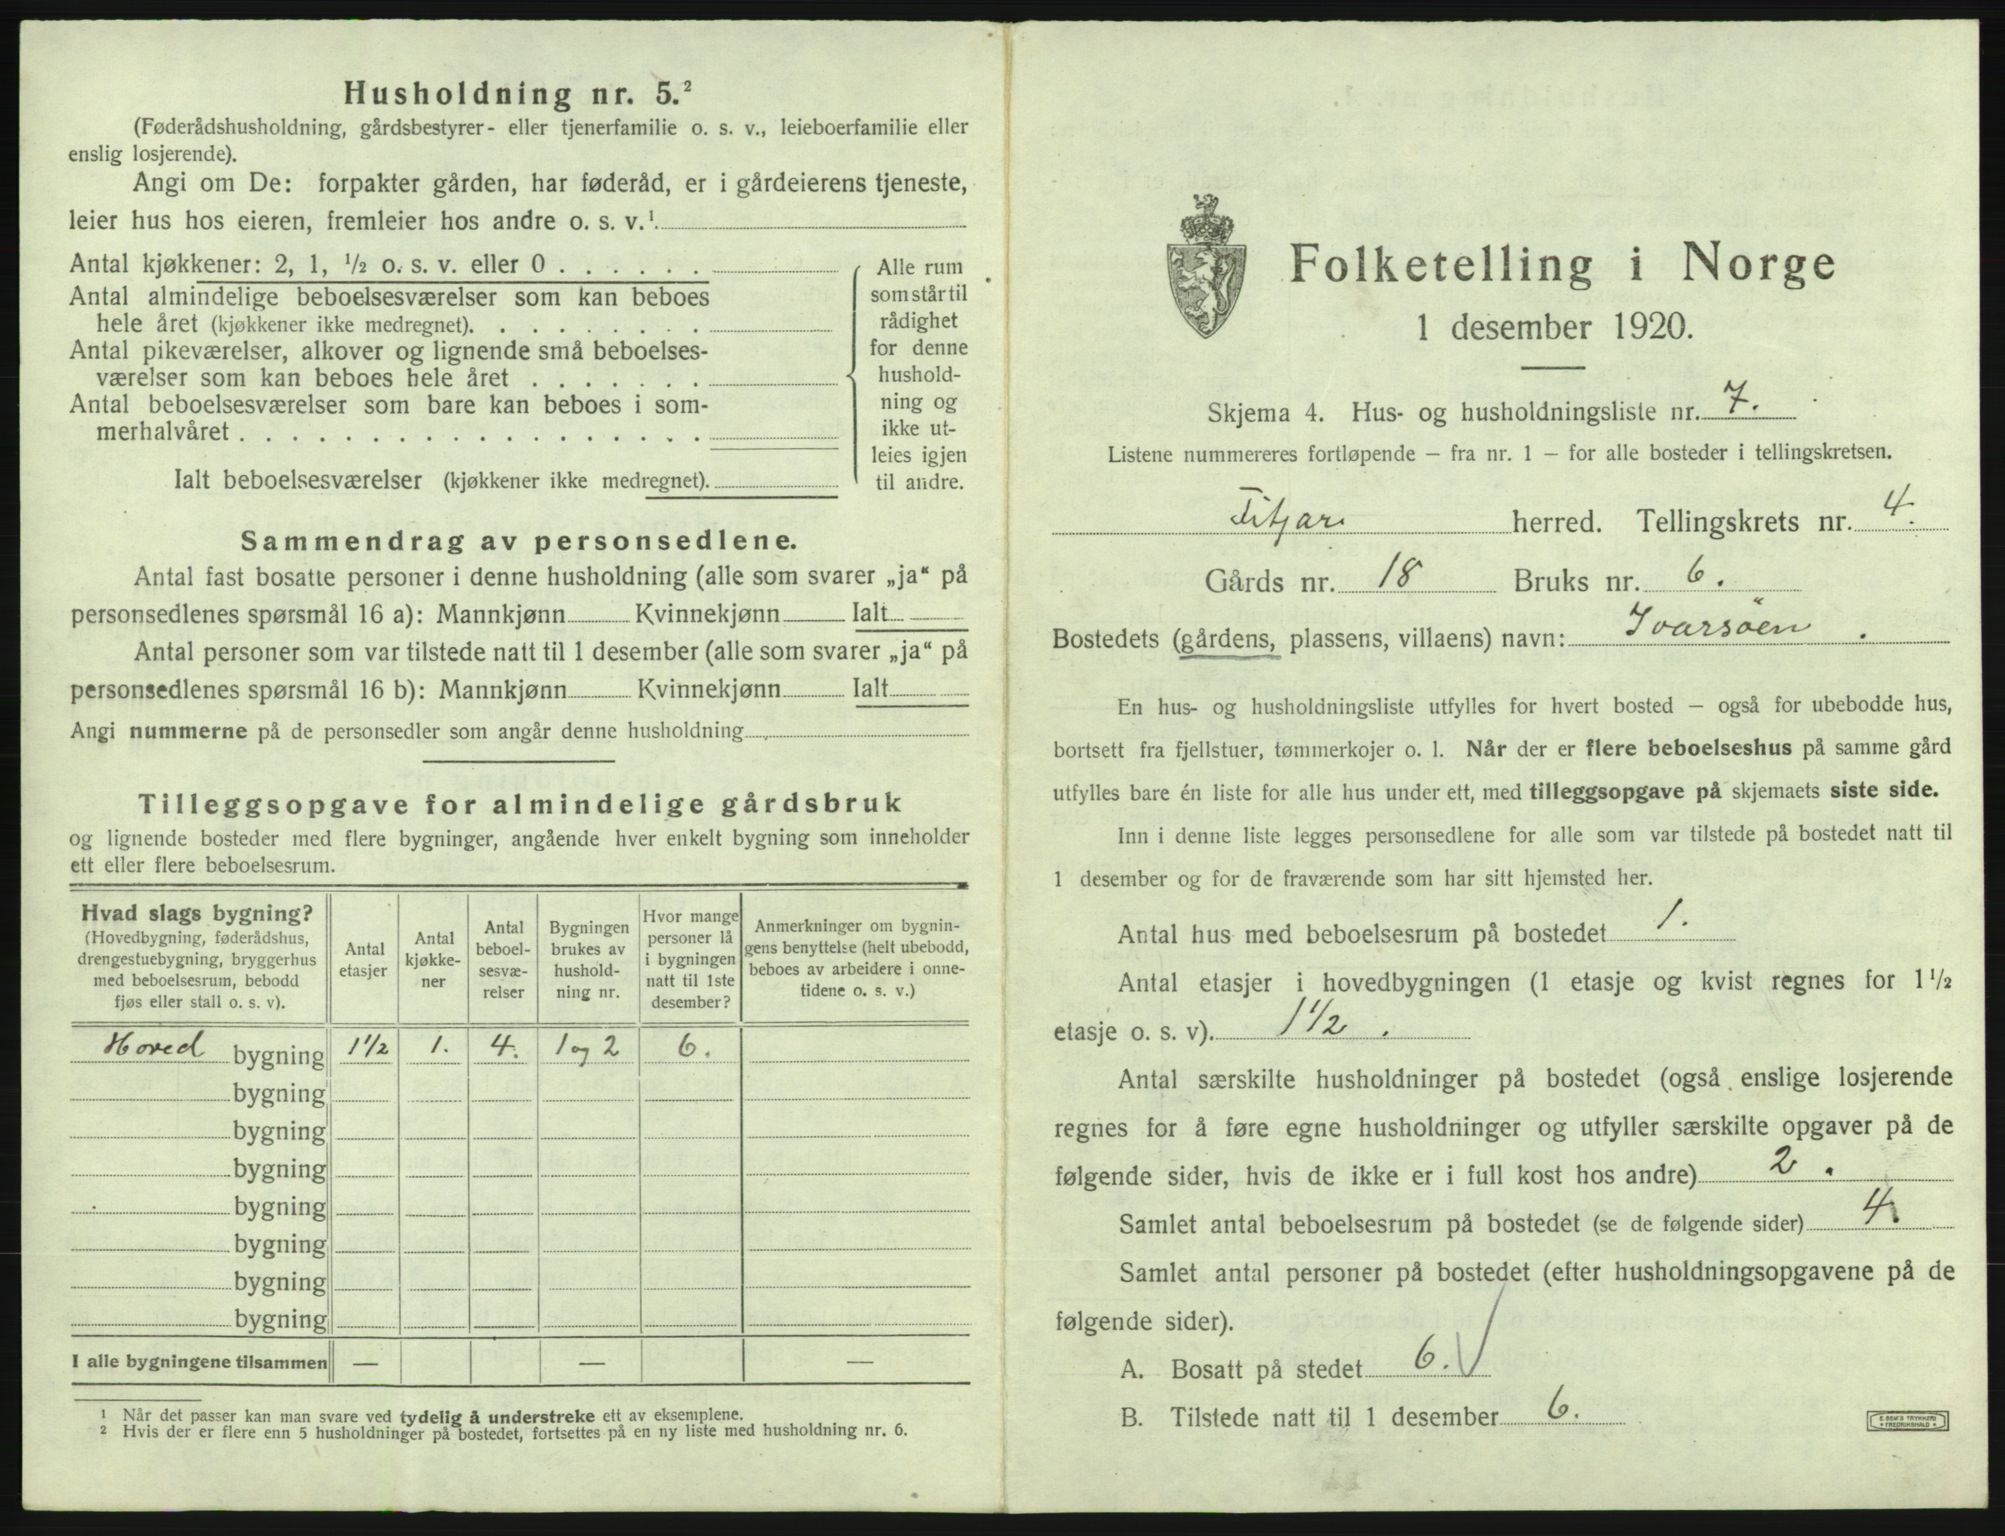 Husholdning nr. 5.²
(Føderådshusholdning, gårdsbestyrer- eller tjenerfamilie o. s. v., leieboerfamilie eller
enslig losjerende).
Angi om De: forpakter gården, har føderåd, er i gårdeierens tjeneste,
leier hus hos eieren, fremleier hos andre o. s. v.¹.
Antal kjøkkener: 2, 1, ½ o. s. v. eller 0 . . . . . .
Antal almindelige beboelsesværelser som kan beboes
hele året (kjøkkener ikke medregnet). . . . . . . . .
Antal pikeværelser, alkover og lignende små beboelses-
værelser som kan beboes hele året . . . . . . .
Antal beboelsesværelser som bare kan beboes i som-
merhalvåret . . . . . . . . . . . . . . . . . .
Alle rum
som står til
rådighet
for denne
hushold-
ning og
ikke ut-
leies igjen
til andre.
Ialt beboelsesværelser (kjøkkener ikke medregnet).
Sammendrag av personsedlene.
Antal fast bosatte personer i denne husholdning (alle som svarer „ja“ på
personsedlenes spørsmål 16 a): Mannkjønn Kvinnekjønn Ialt
Antal personer som var tilstede natt til 1 desember (alle som svarer „ja“ på
personsedlenes spørsmål 16 b): Mannkjønn Kvinnekjønn Ialt
Angi nummerne på de personsedler som angår denne husholdning
Tilleggsopgave for almindelige gårdsbruk
og lignende bosteder med flere bygninger, angående hver enkelt bygning som inneholder
ett eller flere beboelsesrum.
Hvad slags bygning?
(Hovedbygning, føderådshus,
drengestuebygning, bryggerhus
med beboelsesrum, bebodd
fjøs eller stall o. s. v).
Antal
etasjer
Antal
kjøkke-
ner
Antal
beboel-
sesvæ-
relser
Bygningen
brukes av
hushold-
ning nr.
Hvor mange
personer lå
i bygningen
natt til 1ste
desember?
Anmerkninger om bygnin-
gens benyttelse (helt ubebodd,
beboes av arbeidere i onne-
tidene o. s. v.)
Hoved bygning 1½ 1. 4. 1 og 2 6.
bygning
bygning
bygning
bygning
bygning
bygning
bygning
I alle bygningene tilsammen — — —
¹ Når det passer kan man svare ved tydelig å understreke ett av eksemplene.
² Hvis der er flere enn 5 husholdninger på bostedet, fortsettes på en ny liste med husholdning nr. 6.
Folketelling i Norge
1 desember 1920.
Skjema 4. Hus- og husholdningsliste nr. 7.
Listene nummereres fortløpende – fra nr. 1 – for alle bosteder i tellingskretsen.
Fitjar herred. Tellingskrets nr. 4.
Gårds nr. 18 Bruks nr. 6.
Bostedets (gårdens, plassens, villaens) navn: Ivarsöen.
En hus- og husholdningsliste utfylles for hvert bosted – også for ubebodde hus,
bortsett fra fjellstuer, tømmerkojer o. l. Når der er flere beboelseshus på samme gård
utfylles bare én liste for alle hus under ett, med tilleggsopgave på skjemaets siste side.
Inn i denne liste legges personsedlene for alle som var tilstede på bostedet natt til
1 desember og for de fraværende som har sitt hjemsted her.
Antal hus med beboelsesrum på bostedet 1.
Antal etasjer i hovedbygningen (1 etasje og kvist regnes for 1½
etasje o. s. v). 1½.
Antal særskilte husholdninger på bostedet (også enslige losjerende
regnes for å føre egne husholdninger og utfyller særskilte opgaver på de
følgende sider, hvis de ikke er i full kost hos andre) 2.
Samlet antal beboelsesrum på bostedet (se de følgende sider) 4.
Samlet antal personer på bostedet (efter husholdningsopgavene på de
følgende sider).
A. Bosatt på stedet 6. √
B. Tilstede natt til 1 desember 6.